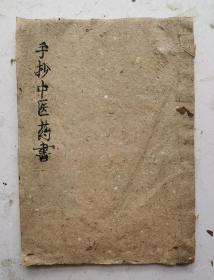 手抄中医药書